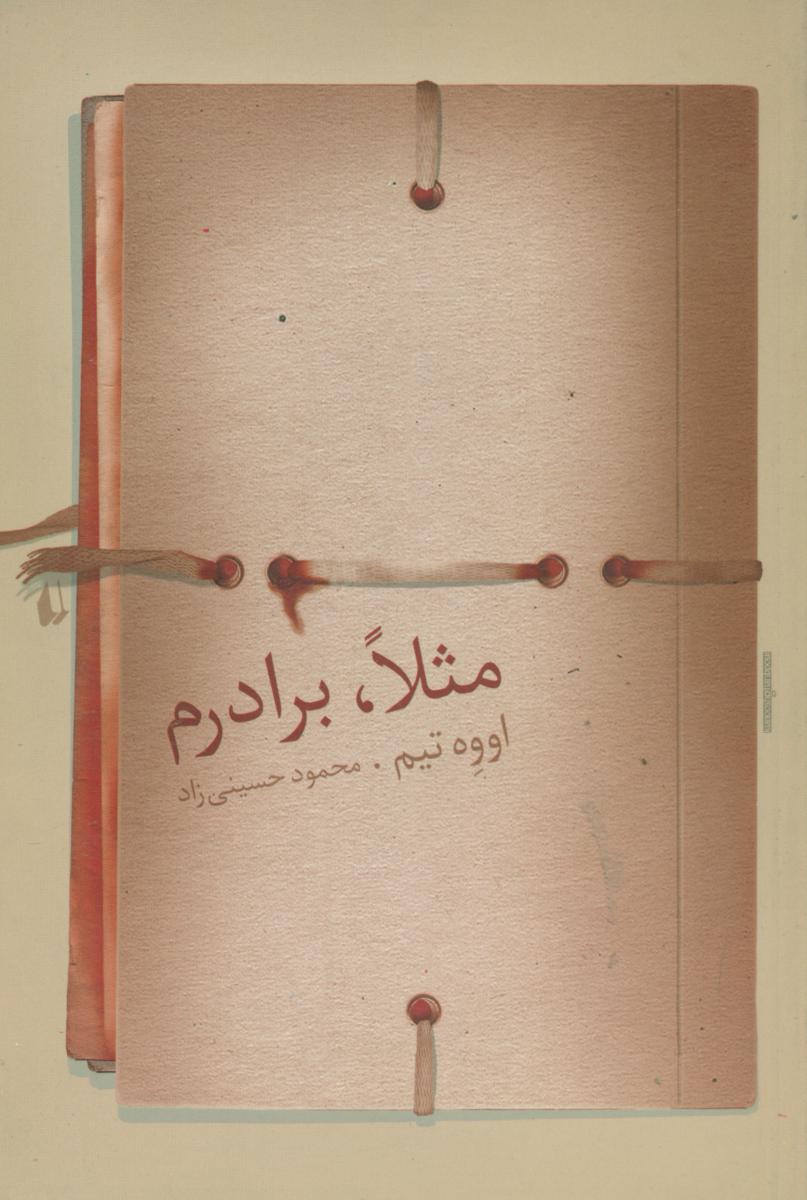 مثلاً، برادرم
اووِه تیم . محمود حسینی‌زاد